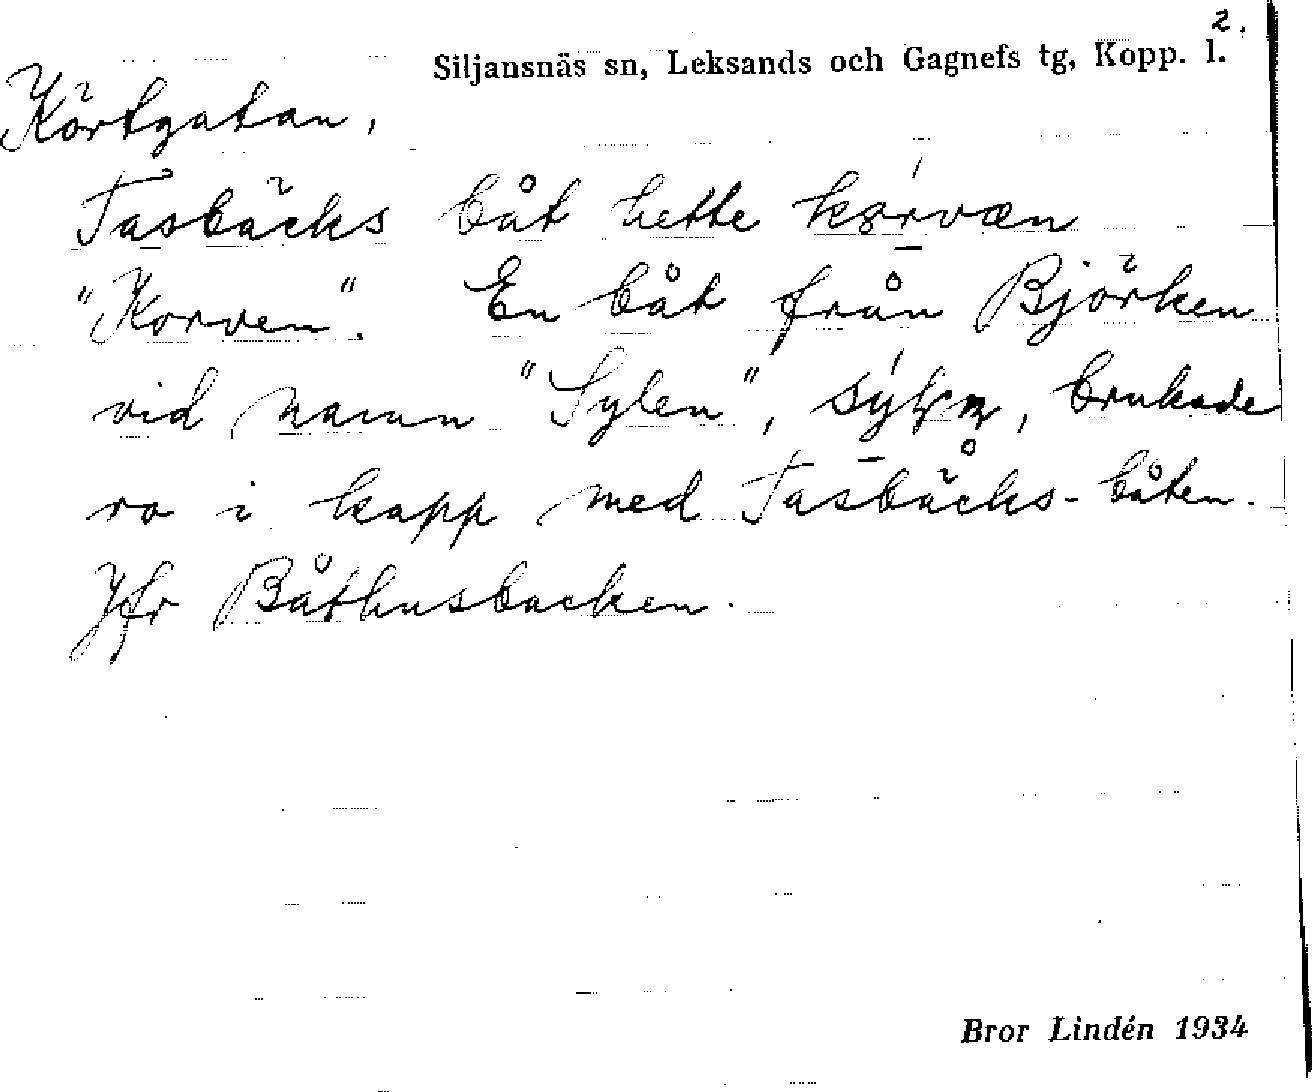 2.
Siljansnäs sn, Leksands och Gagnefs tg, Kopp. l.
Körtgatan,
Tasbäcks båt hette korvæn
"Korven". En båt från Björken
vid namn "Sylen", brukade
ro i kapp med Tasbäcks-båten.
Jfr Båthusbacken.
Bror Lindén 1934